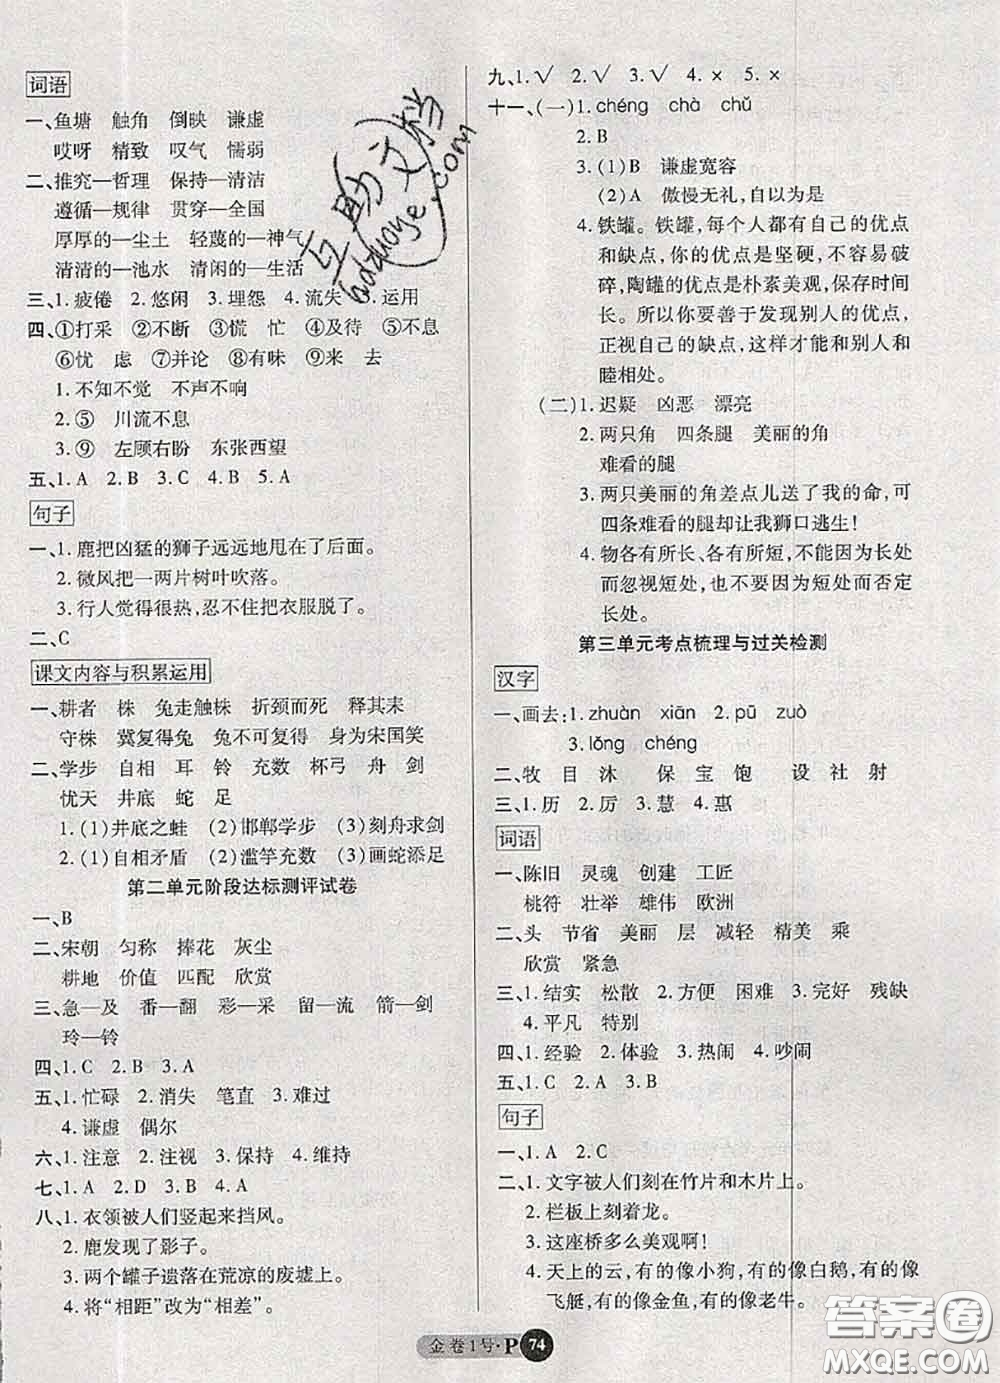 词语
一、鱼塘 触角 倒映 谦虚
哎呀 精致 叹气 懦弱
二、推究—哲理 保持—清洁
遵循—规律 贯穿—全国
厚厚的—尘土 轻蔑的—神气
清清的—池水 清闲的—生活
三、1.疲倦 2.悠闲 3.埋怨 4.流失 5.运用
四、①打采 ②不断 ③慌 忙 ④及待 ⑤不息
⑥忧 虑 ⑦并论 ⑧有味 ⑨来 去
1.不知不觉 不声不响
2.⑤ 川流不息
3.⑨ 左顾右盼 东张西望
五、1.A 2.B 3.C 4.B 5.A
句子
一、1.鹿把凶猛的狮子远远地甩在了后面。
2.微风把一两片树叶吹落。
3.行人觉得很热,忍不住把衣服脱了。
二、C
课文内容与积累运用
一、耕者 株 兔走触株 折颈而死 释其耒
守株 冀复得兔 兔不可复得 身为宋国笑
二、学步 自相 耳 铃 充数 杯弓 舟 剑
忧天 井底 蛇 足
1.(1)井底之蛙 (2)邯郸学步 (3)刻舟求剑
2.(1)自相矛盾 (2)滥竽充数 (3)画蛇添足
第二单元阶段达标测评试卷
一、B
二、宋朝 匀称 捧花 灰尘
耕地 价值 匹配 欣赏
三、急—及 番—翻 彩—采 留—流 箭—剑
玲—铃
四、1.C 2.B 3.A
五、1.忙碌 2.消失 笔直 3.难过
4.谦虚 偶尔
六、1.注意 2.注视 3.保持 4.维持
七、1.A 2.D 3.B 4.A
八、1.衣领被人们竖起来挡风。
2.鹿发现了影子。
3.两个罐子遗落在荒凉的废墟上。
4.将“相距”改为“相差”。
九、1.√ 2.√ 3.√ 4.× 5.×
十一、(一)1.chéng chà chǔ
2.B
3.(1)B 谦虚宽容
(2)A 傲慢无礼,自以为是
4.铁罐。铁罐,每个人都有自己的优点
和缺点,你的优点是坚硬,不容易破
碎,陶罐的优点是朴素美观,保存时间
长。所以你要善于发现别人的优点,
正视自己的缺点,这样才能和别人和
睦相处。
(二)1.迟疑 凶恶 漂亮
2.两只角 四条腿 美丽的角
难看的腿
3.两只美丽的角差点儿送了我的命,可
四条难看的腿却让我狮口逃生!
4.物各有所长、各有所短,不能因为长处
而忽视短处,也不能因为短处而否定
长处。
第三单元考点梳理与过关检测
汉字
一、画去:1.zhuàn xiān 2.pū zuò
3.lǒng chéng
二、牧 目 沐 保 宝 饱 设 社 射
三、1.历 2.厉 3.慧 4.惠
词语
一、陈旧 灵魂 创建 工匠
桃符 壮举 雄伟 欧洲
二、头 节省 美丽 层 减轻 精美 乘
欣赏 紧急
三、1.结实 松散 2.方便 困难 3.完好 残缺
4.平凡 特别
四、1.经验 2.体验 3.热闹 4.吵闹
五、1.C 2.A 3.B
句子
一、1.A 2.C
二、1.文字被人们刻在竹片和木片上。
2.栏板上刻着龙。
3.这座桥多么美观啊!
4.天上的云,有的像小狗,有的像白鹅,有的像
飞艇,有的像金鱼,有的像老牛。
金卷1号·P 74
答案卷
MXQE.COM